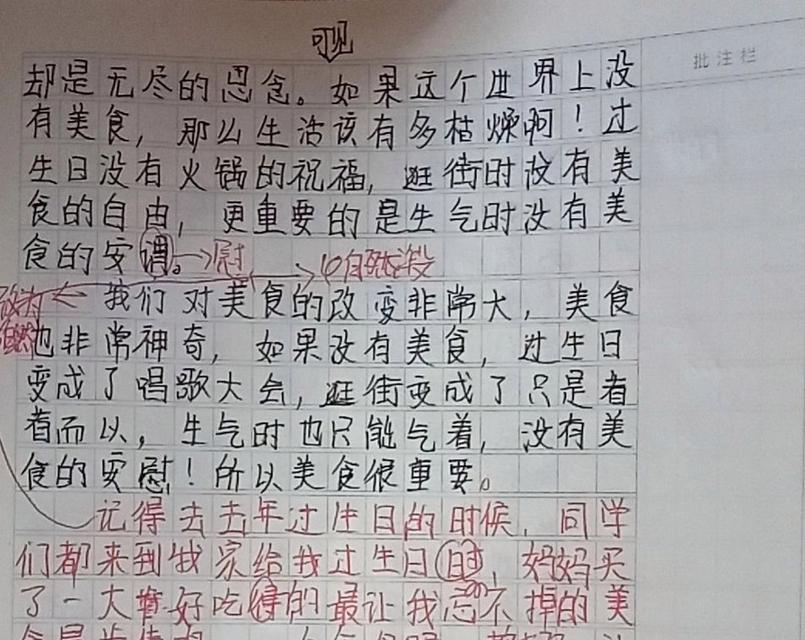 可见
批注栏
却是无尽的思念。如果这个世界上没
有美食，那么生活该有多枯燥啊！过
生日没有火锅的祝福，逛街时没有美
食的自由，更重要的是生气时没有美
食的安谓。→慰
自然段
改为
我们对美食的改变非常大，美食
自然
也非常神奇，如果没有美食，过生日
变成了唱歌大会，逛街变成了只是看
看而以，生气时也只能气着，没有美
食的安慰！所以美食很重要。
记得去去年过生日的时候，同学
们都来到我家给我过生日时，妈妈买
了一大堆好吃得的最让我忘不掉的美
食是